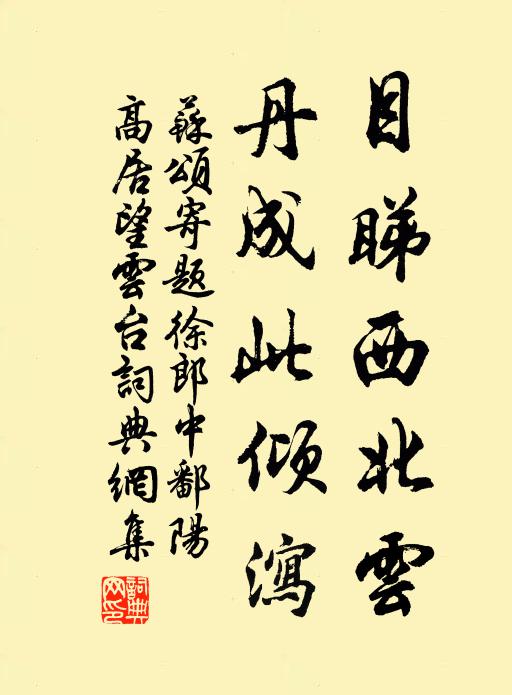 目睇西北雲
丹成此傾瀉
蘇頌寄題徐郎中鄱陽
高居望雲台詞典網集